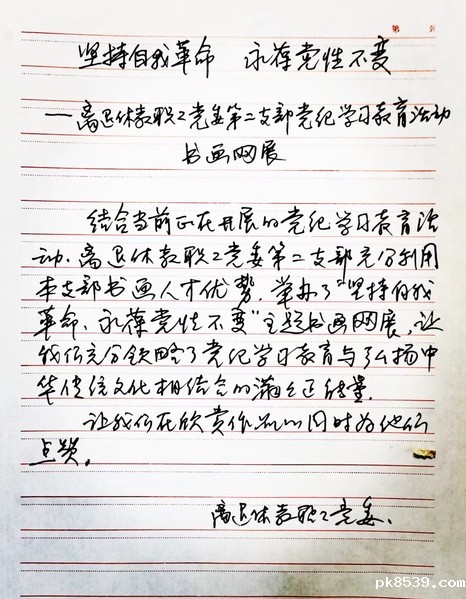 第
坚持自我革命 永葆党性不变
——离退休教职工党委第二支部党纪学习教育活动
书画网展
结合当前正在开展的党纪学习教育活
动、离退休教职工党委第二支部充分利用
本支部书画人才优势,举办了“坚持自我
革命、永葆党性不变”主题书画网展,让
我们充分领略了党纪学习教育与弘扬中
华传统文化相结合的满满正能量.
让我们在欣赏作品的同时为他们
点赞。
离退休教职工党委.
pk8539.com